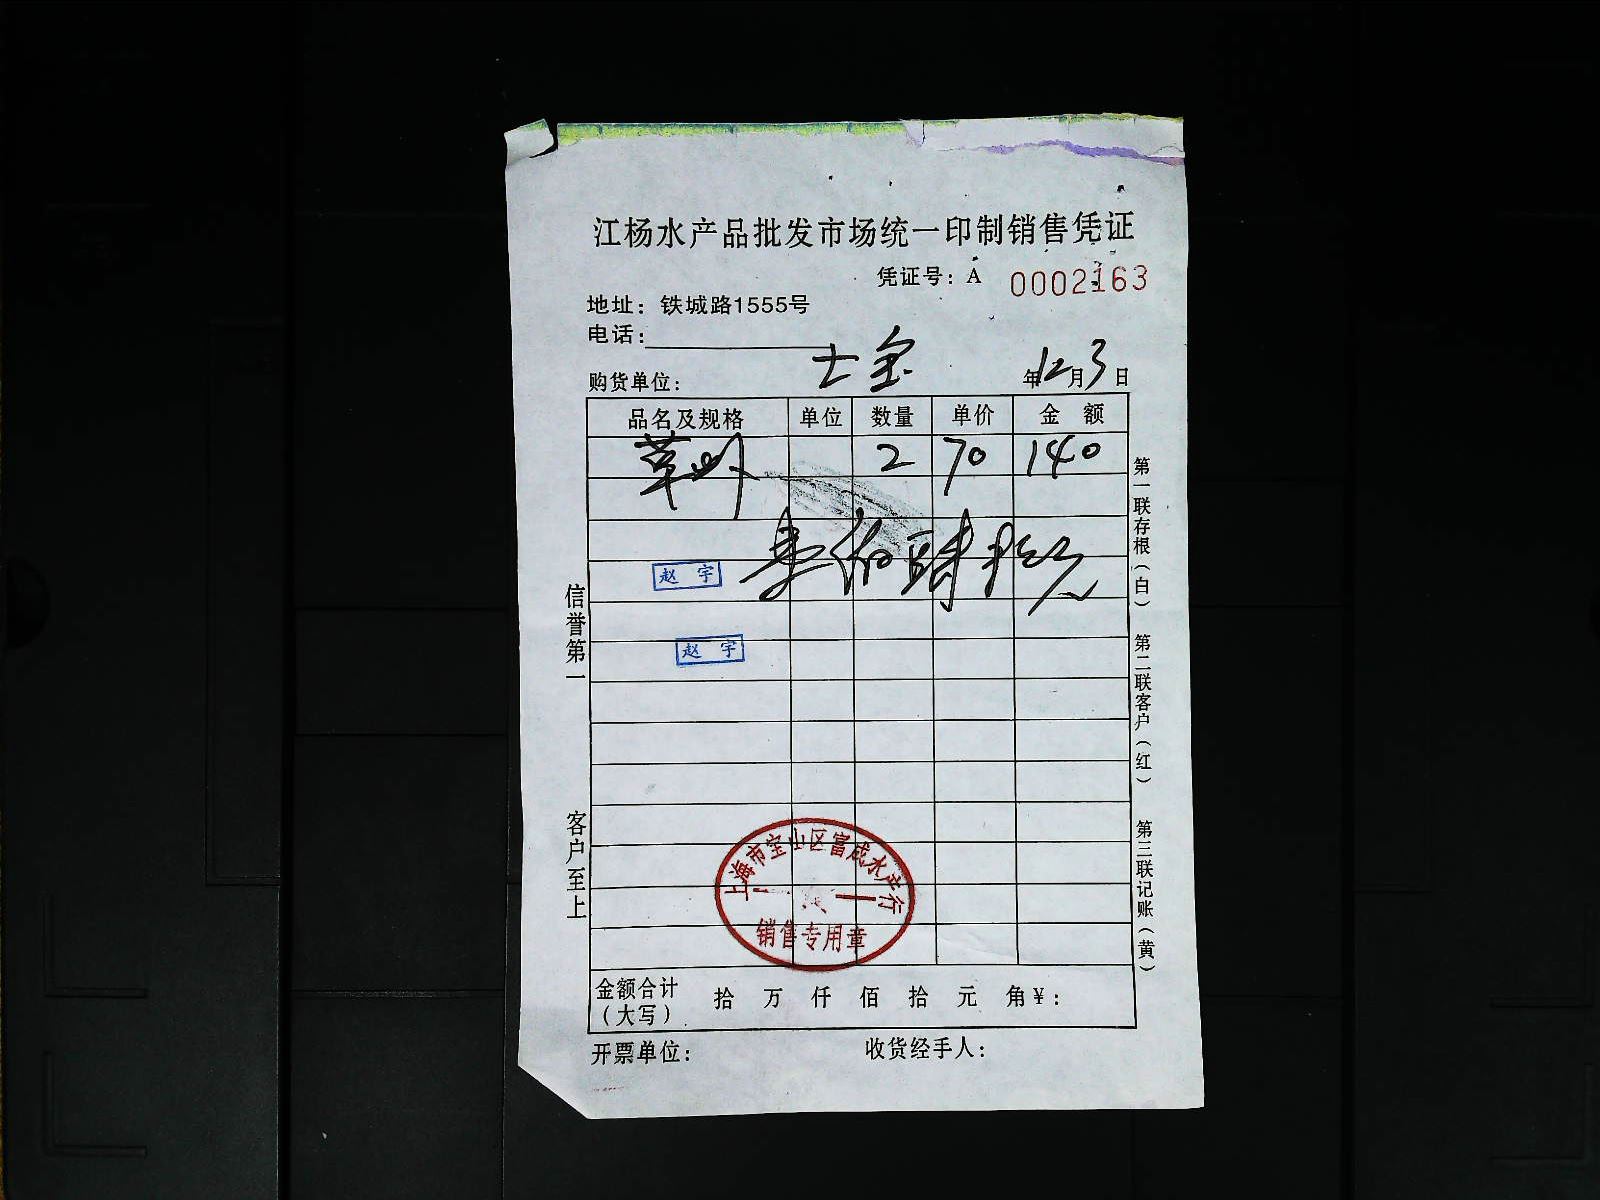 江杨水产品批发市场统一印制销售凭证
凭证号：A 0002163
地址：铁城路1555号
电话：
购货单位： 士宝 年12月3日
品名及规格 单位 数量 单价 金额
草虾 2 70 140
壹佰肆拾元
赵宇
赵宇
信誉第一
客户至上
第一联存根（白）
第二联客户（红）
第三联记账（黄）
上海市宝山区富成水产行
销售专用章
金额合计（大写） 拾 万 仟 佰 拾 元 角￥：
开票单位： 收货经手人：